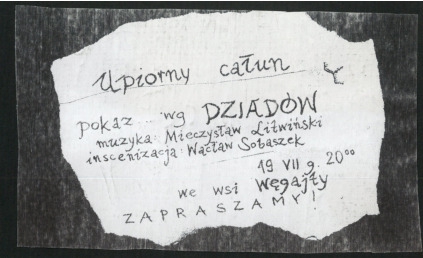 Upiorny całun
pokaz wg DZIADÓW
muzyka: Mieczysław Litwiński
inscenizacja: Wacław Sobaszek
19 VII g. 20⁰⁰
we wsi Węgajty
ZAPRASZAMY!